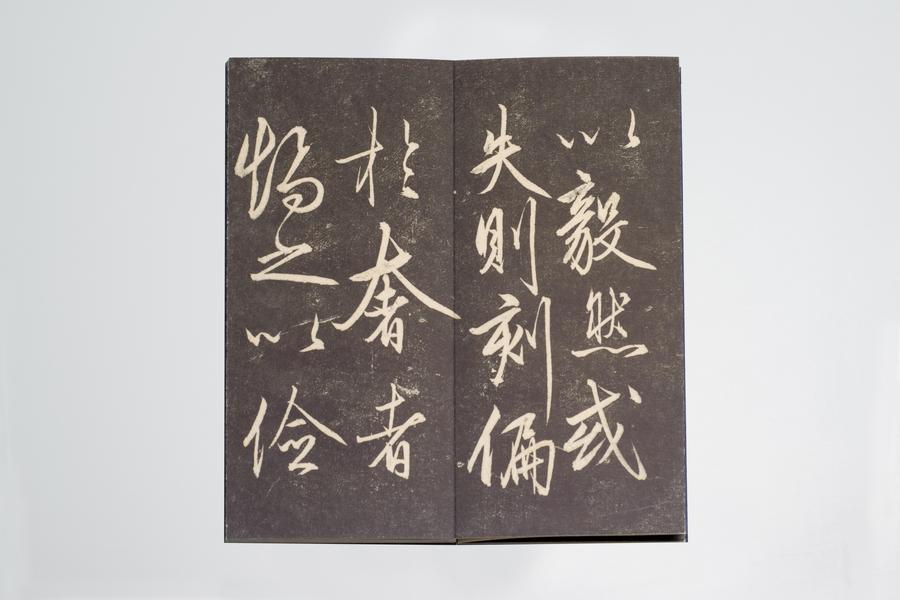 以毅然或
失则刻偏
於奢者
矫之以俭